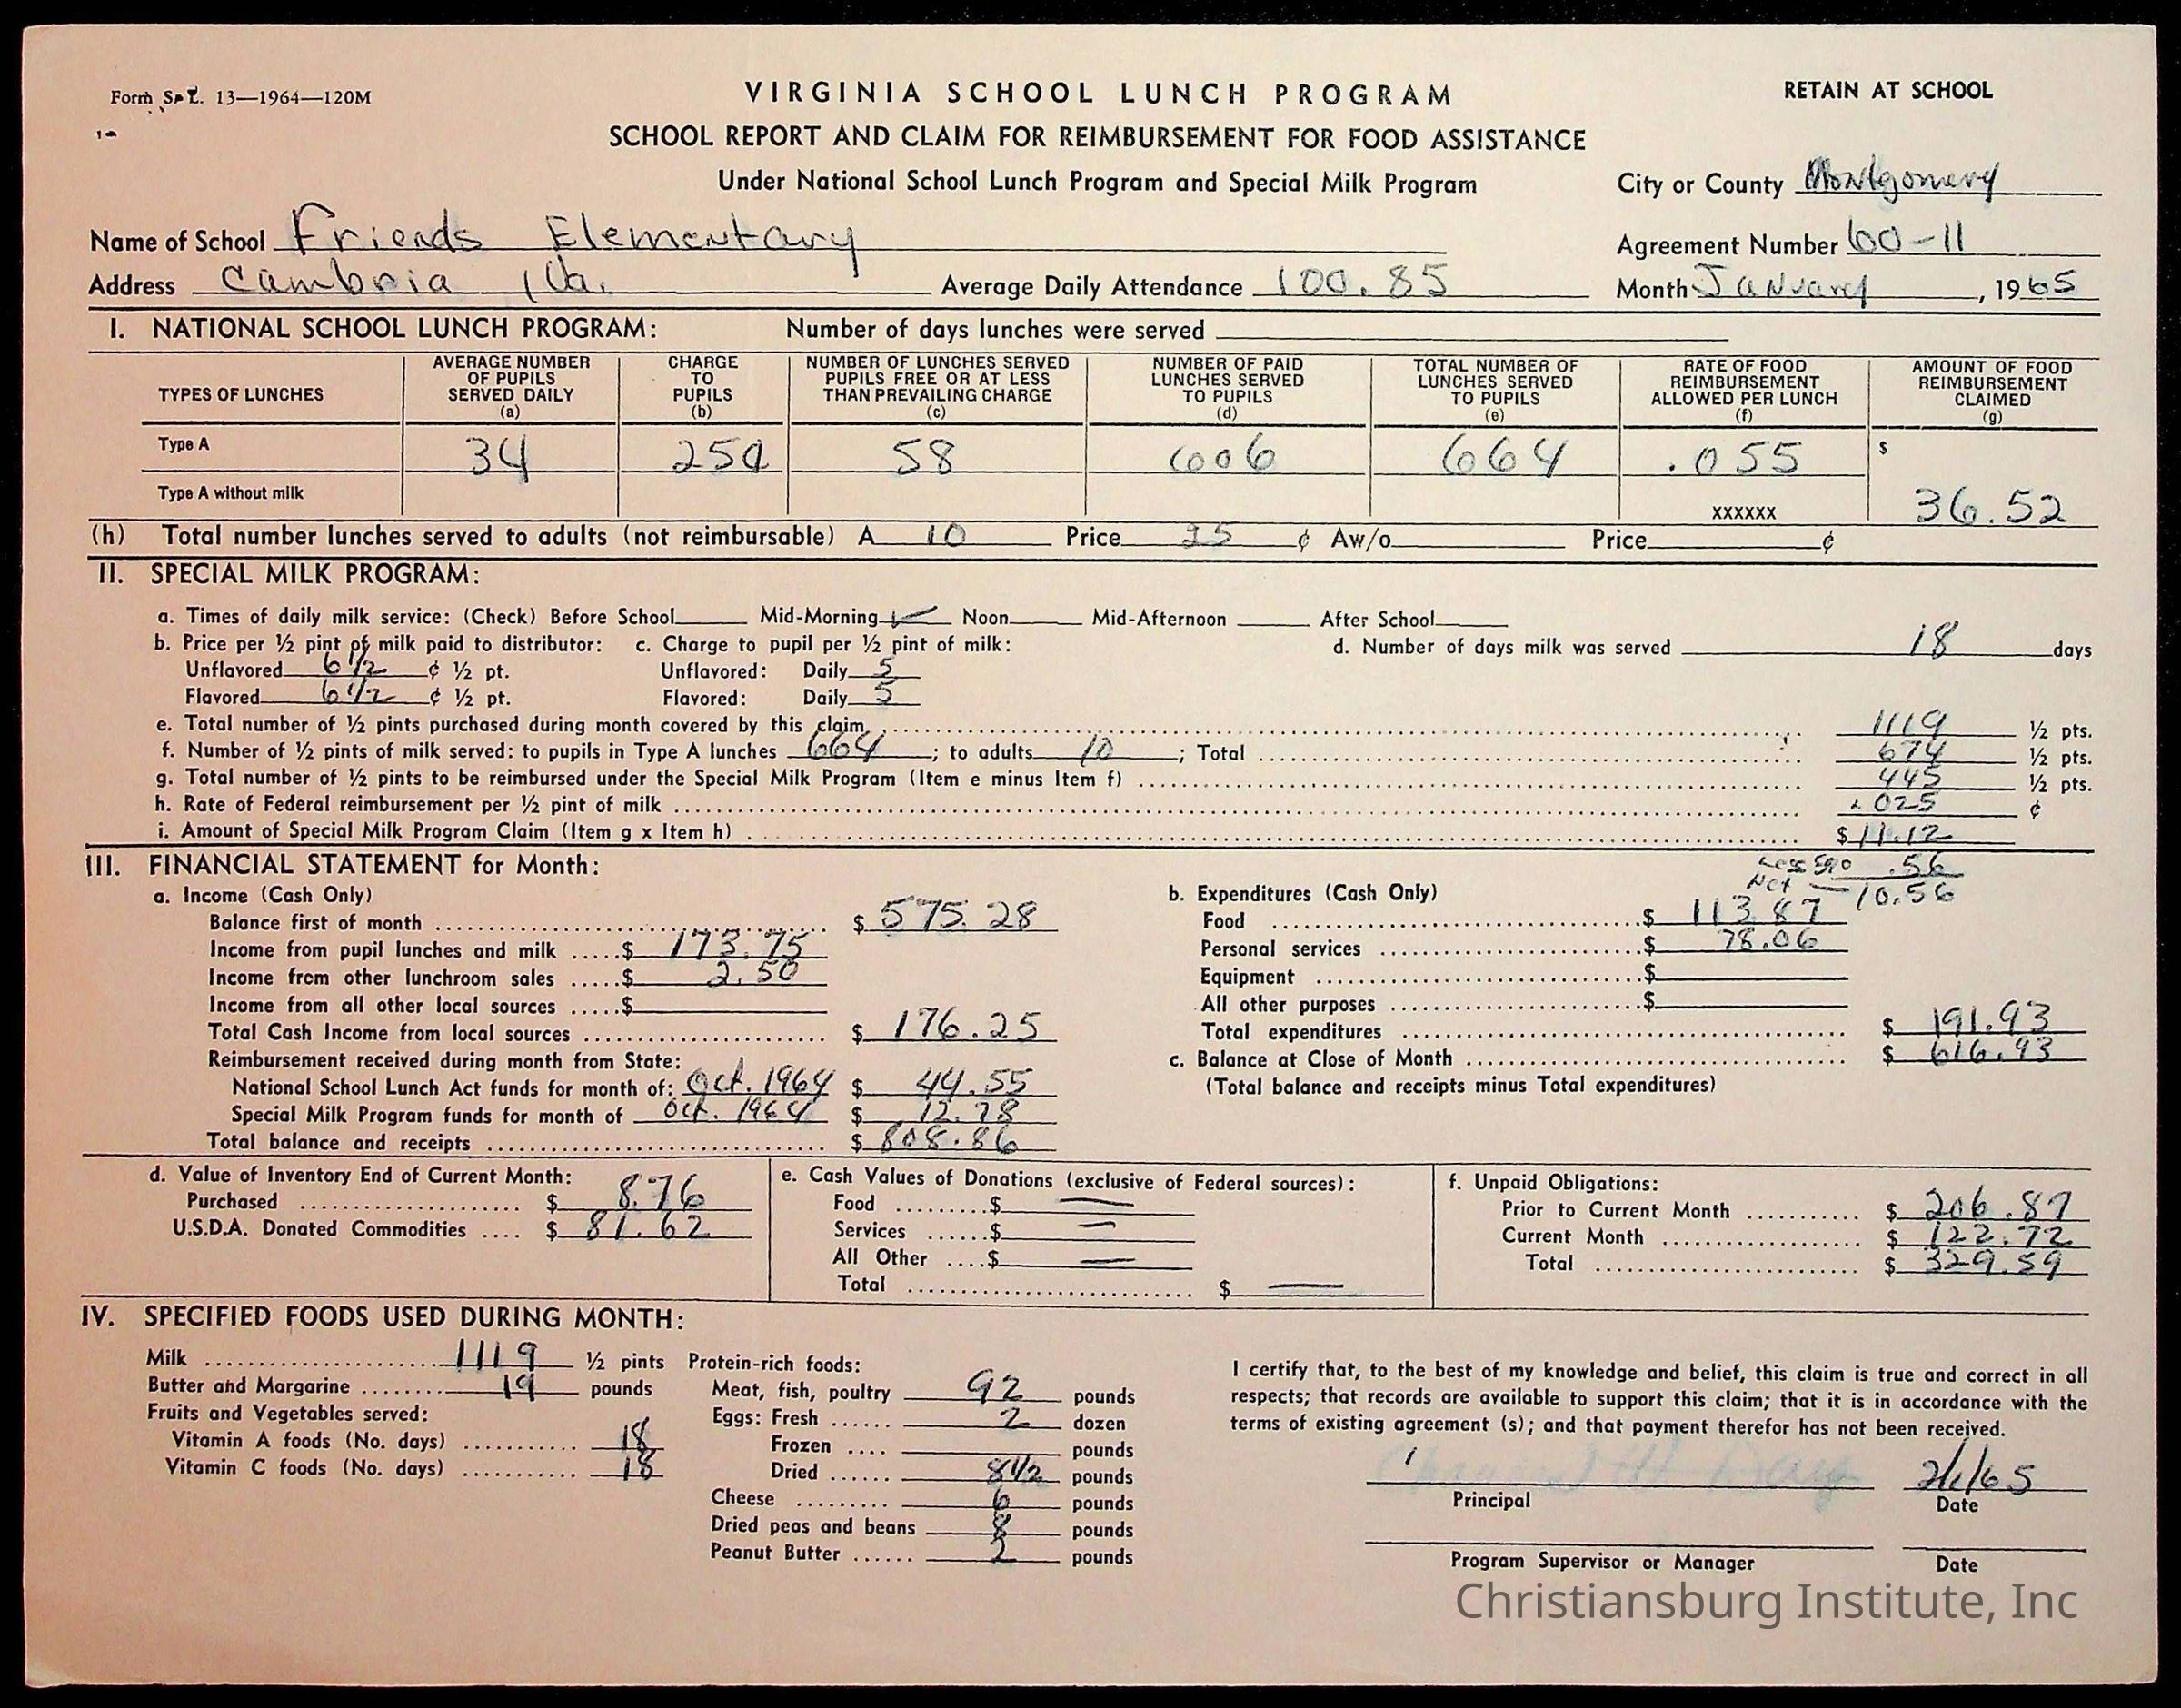 Form S. L. 13—1964—120M
VIRGINIA SCHOOL LUNCH PROGRAM
RETAIN AT SCHOOL
SCHOOL REPORT AND CLAIM FOR REIMBURSEMENT FOR FOOD ASSISTANCE
Under National School Lunch Program and Special Milk Program
City or County Montgomery
Name of School Friends Elementary
Agreement Number 60-11
Address Cambria Va. Average Daily Attendance 100.85 Month January, 1965
I. NATIONAL SCHOOL LUNCH PROGRAM: Number of days lunches were served
TYPES OF LUNCHES
AVERAGE NUMBER OF PUPILS SERVED DAILY (a)
CHARGE TO PUPILS (b)
NUMBER OF LUNCHES SERVED PUPILS FREE OR AT LESS THAN PREVAILING CHARGE (c)
NUMBER OF PAID LUNCHES SERVED TO PUPILS (d)
TOTAL NUMBER OF LUNCHES SERVED TO PUPILS (e)
RATE OF FOOD REIMBURSEMENT ALLOWED PER LUNCH (f)
AMOUNT OF FOOD REIMBURSEMENT CLAIMED (g)
Type A 34 25¢ 58 606 664 .055 $
Type A without milk XXXXXX 36.52
(h) Total number lunches served to adults (not reimbursable) A 10 Price 25 ¢ Aw/o Price ¢
II. SPECIAL MILK PROGRAM:
a. Times of daily milk service: (Check) Before School Mid-Morning ✓ Noon Mid-Afternoon After School
b. Price per ½ pint of milk paid to distributor: c. Charge to pupil per ½ pint of milk: d. Number of days milk was served 18 days
Unflavored 6 1/2 ¢ ½ pt. Unflavored: Daily 5
Flavored 6 1/2 ¢ ½ pt. Flavored: Daily 5
e. Total number of ½ pints purchased during month covered by this claim 1119 ½ pts.
f. Number of ½ pints of milk served: to pupils in Type A lunches 664; to adults 10; Total 674 ½ pts.
g. Total number of ½ pints to be reimbursed under the Special Milk Program (Item e minus Item f) 445 ½ pts.
h. Rate of Federal reimbursement per ½ pint of milk .025 ¢
i. Amount of Special Milk Program Claim (Item g x Item h) $ 11.12
Less 5% .56
Net — 10.56
III. FINANCIAL STATEMENT for Month:
a. Income (Cash Only)
Balance first of month $ 575.28
Income from pupil lunches and milk $ 173.75
Income from other lunchroom sales $ 2.50
Income from all other local sources $
Total Cash Income from local sources $ 176.25
Reimbursement received during month from State:
National School Lunch Act funds for month of: Oct. 1964 $ 44.55
Special Milk Program funds for month of Oct. 1964 $ 12.78
Total balance and receipts $ 808.86
b. Expenditures (Cash Only)
Food $ 113.87
Personal services $ 78.06
Equipment $
All other purposes $
Total expenditures $ 191.93
c. Balance at Close of Month $ 616.93
(Total balance and receipts minus Total expenditures)
d. Value of Inventory End of Current Month:
Purchased $ 8.76
U.S.D.A. Donated Commodities $ 81.62
e. Cash Values of Donations (exclusive of Federal sources):
Food $ —
Services $ —
All Other $ —
Total $ —
f. Unpaid Obligations:
Prior to Current Month $ 206.87
Current Month $ 122.72
Total $ 329.59
IV. SPECIFIED FOODS USED DURING MONTH:
Milk 1119 ½ pints
Butter and Margarine 19 pounds
Fruits and Vegetables served:
Vitamin A foods (No. days) 18
Vitamin C foods (No. days) 18
Protein-rich foods:
Meat, fish, poultry 92 pounds
Eggs: Fresh 2 dozen
Frozen pounds
Dried 8 1/2 pounds
Cheese 6 pounds
Dried peas and beans 8 pounds
Peanut Butter 2 pounds
I certify that, to the best of my knowledge and belief, this claim is true and correct in all
respects; that records are available to support this claim; that it is in accordance with the
terms of existing agreement (s); and that payment therefor has not been received.
2/1/65
Principal Date
Program Supervisor or Manager Date
Christiansburg Institute, Inc